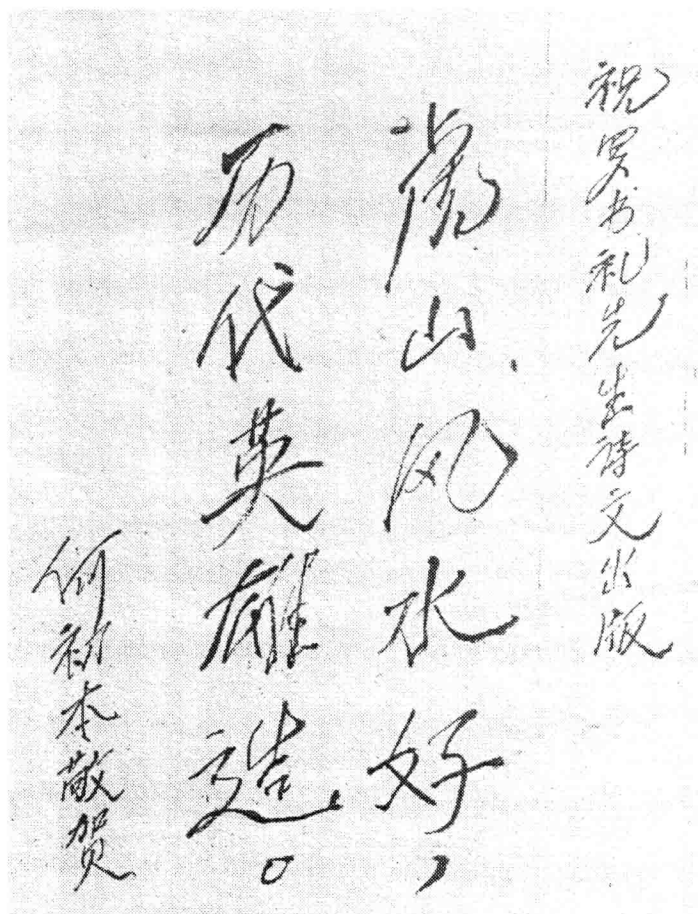 祝罗书礼先生诗文出版
虎山风水好，
历代英雄造。
何初本敬贺